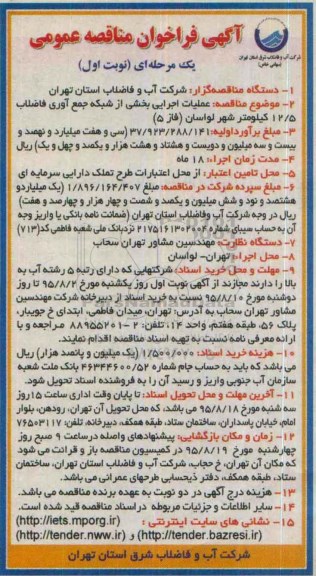 آگهی فراخوان مناقصه عمومی
یک مرحله‌ای (نوبت اول)
شرکت آب و فاضلاب شرق استان تهران
(سهامی خاص)
۱- دستگاه مناقصه‌گزار: شرکت آب و فاضلاب استان تهران
۲- موضوع مناقصه: عملیات اجرایی بخشی از شبکه جمع آوری فاضلاب
۱۲/۵ کیلومتر شهر لواسان (فاز ۵)
۳- مبلغ برآورداولیه: ۳۷/۹۲۳/۲۸۸/۱۴۱ (سی و هفت میلیارد و نهصد و
بیست و سه میلیون و دویست و هشتاد و هشت هزار و یکصد و چهل و یک) ریال
۴- مدت زمان اجرا: ۱۸ ماه
۵- محل تأمین اعتبار: از محل اعتبارات طرح تملک دارایی سرمایه ای
۶- مبلغ سپرده شرکت در مناقصه: مبلغ ۱/۸۹۶/۱۶۴/۴۰۷ (یک میلیاردو
هشتصد و نود و شش میلیون و یکصد و شصت و چهار هزار و چهارصد و هفت)
ریال در وجه شرکت آب وفاضلاب استان تهران (ضمانت نامه بانکی یا واریز وجه
آن به حساب سیبای شماره ۲۱۷۵۱۶۱۳۰۲۰۰۲ نزدبانک ملی شعبه فاطمی کد(۷۱۳)
۷- دستگاه نظارت: مهندسین مشاور تهران سحاب
۸- محل اجرا: تهران- لواسان
۹- مهلت و محل خرید اسناد: شرکتهایی که دارای رتبه ۵ رشته آب به
بالا را دارند مجازند از آگهی نوبت اول روز یکشنبه مورخ ۹۵/۸/۲ تا روز
دوشنبه مورخ ۹۵/۸/۱۰ نسبت به خرید اسناد از دبیرخانه شرکت مهندسین
مشاور تهران سحاب به آدرس: تهران، میدان فاطمی، ابتدای خ جویبار،
پلاک ۵۶، طبقه هفتم، واحد ۱۴، تلفن: ۲-۸۸۹۵۵۲۰۱ مراجعه و با
ارائه معرفی نامه نسبت به تهیه اسناد مناقصه اقدام نمایند.
۱۰- هزینه خرید اسناد: ۱/۵۰۰/۰۰۰ (یک میلیون و پانصد هزار) ریال
می باشد که باید به حساب جام شماره ۴۶۳۴۴۶۰۰/۵۲ بانک ملت شعبه
سازمان آب جنوبی واریز و رسید آن را به فروشنده اسناد تحویل شود.
۱۱- آخرین مهلت و محل تحویل اسناد: تا پایان وقت اداری ساعت ۱۵روز
سه شنبه مورخ ۹۵/۸/۱۸ می باشد، که محل تحویل آن تهران، رودهن، بلوار
امام، خیابان پاسداران، ساختمان ستاد، طبقه همکف، دبیرخانه، تلفن: ۷۶۵۰۳۱۱۷
۱۲- زمان و مکان بازگشایی: پیشنهادهای واصله درساعت ۹ صبح روز
چهارشنبه مورخ ۹۵/۸/۱۹ در کمیسیون مناقصه باز و قرائت می شود
که مکان آن تهران، خ حجاب، شرکت آب و فاضلاب استان تهران، ساختمان
ستاد، طبقه همکف، دفتر ذیحسابی طرحهای عمرانی می باشد.
۱۳- هزینه درج آگهی در دو نوبت به عهده برنده مناقصه می باشد.
۱۴- سایر اطلاعات و جزئیات مربوطه دراسناد مناقصه قید شده است.
۱۵- نشانی های سایت اینترنتی: (http://iets.mporg.ir)
(http://tender.bazresi.ir) و (http://tender.nww.ir)
شرکت آب و فاضلاب شرق استان تهران